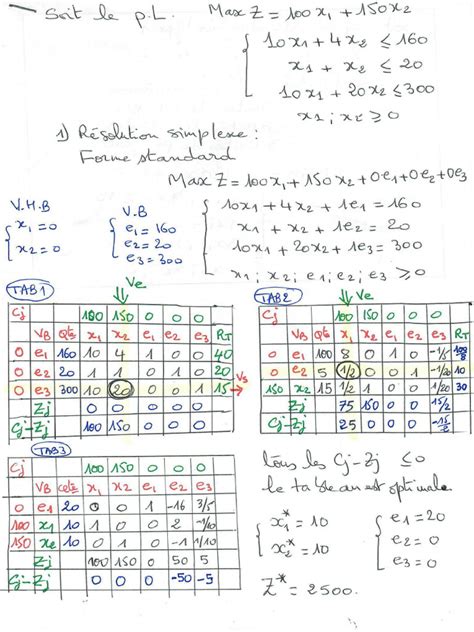 Soit le p.L. Max Z = 100x₁ + 150x₂
10x₁ + 4x₂ ≤ 160
x₁ + x₂ ≤ 20
10x₁ + 20x₂ ≤ 300
x₁ ; x₂ ≥ 0
1) Résolution simplexe :
Forme standard
Max Z = 100x₁ + 150x₂ + 0e₁ + 0e₂ + 0e₃
10x₁ + 4x₂ + 1e₁ = 160
x₁ + x₂ + 1e₂ = 20
10x₁ + 20x₂ + 1e₃ = 300
x₁ ; x₂ ; e₁ ; e₂ ; e₃ ≥ 0
V.H.B
x₁ = 0
x₂ = 0
V.B
e₁ = 160
e₂ = 20
e₃ = 300
TAB1
Ve
Cj 100 150 0 0 0
VB Qtés x₁ x₂ e₁ e₂ e₃ RT
0 e₁ 160 10 4 1 0 0 40
0 e₂ 20 1 1 0 1 0 20
0 e₃ 300 10 20 0 0 1 15 Vs
Zj 0 0 0 0 0
Cj-Zj 100 150 0 0 0
TAB2
Ve
Cj 100 150 0 0 0
VB Qts x₁ x₂ e₁ e₂ e₃ RT
0 e₁ 100 8 0 1 0 -1/5 100/8
0 e₂ 5 1/2 0 0 1 -1/20 10
150 x₂ 15 1/2 1 0 0 1/20 30
Zj 75 150 0 0 15/2
Cj-Zj 25 0 0 0 -15/2
TAB3
Cj 100 150 0 0 0
VB x₁ x₂ e₁ e₂ e₃
0 e₁ 20 0 0 1 -16 3/5
100 x₁ 10 1 0 0 2 -1/10
150 x₂ 10 0 1 0 -1 1/10
Zj 100 150 0 50 5
Cj-Zj 0 0 0 -50 -5
tous les Cj-Zj ≤ 0
le tableau est optimale
x₁* = 10
x₂* = 10
e₁ = 20
e₂ = 0
e₃ = 0
Z* = 2500.